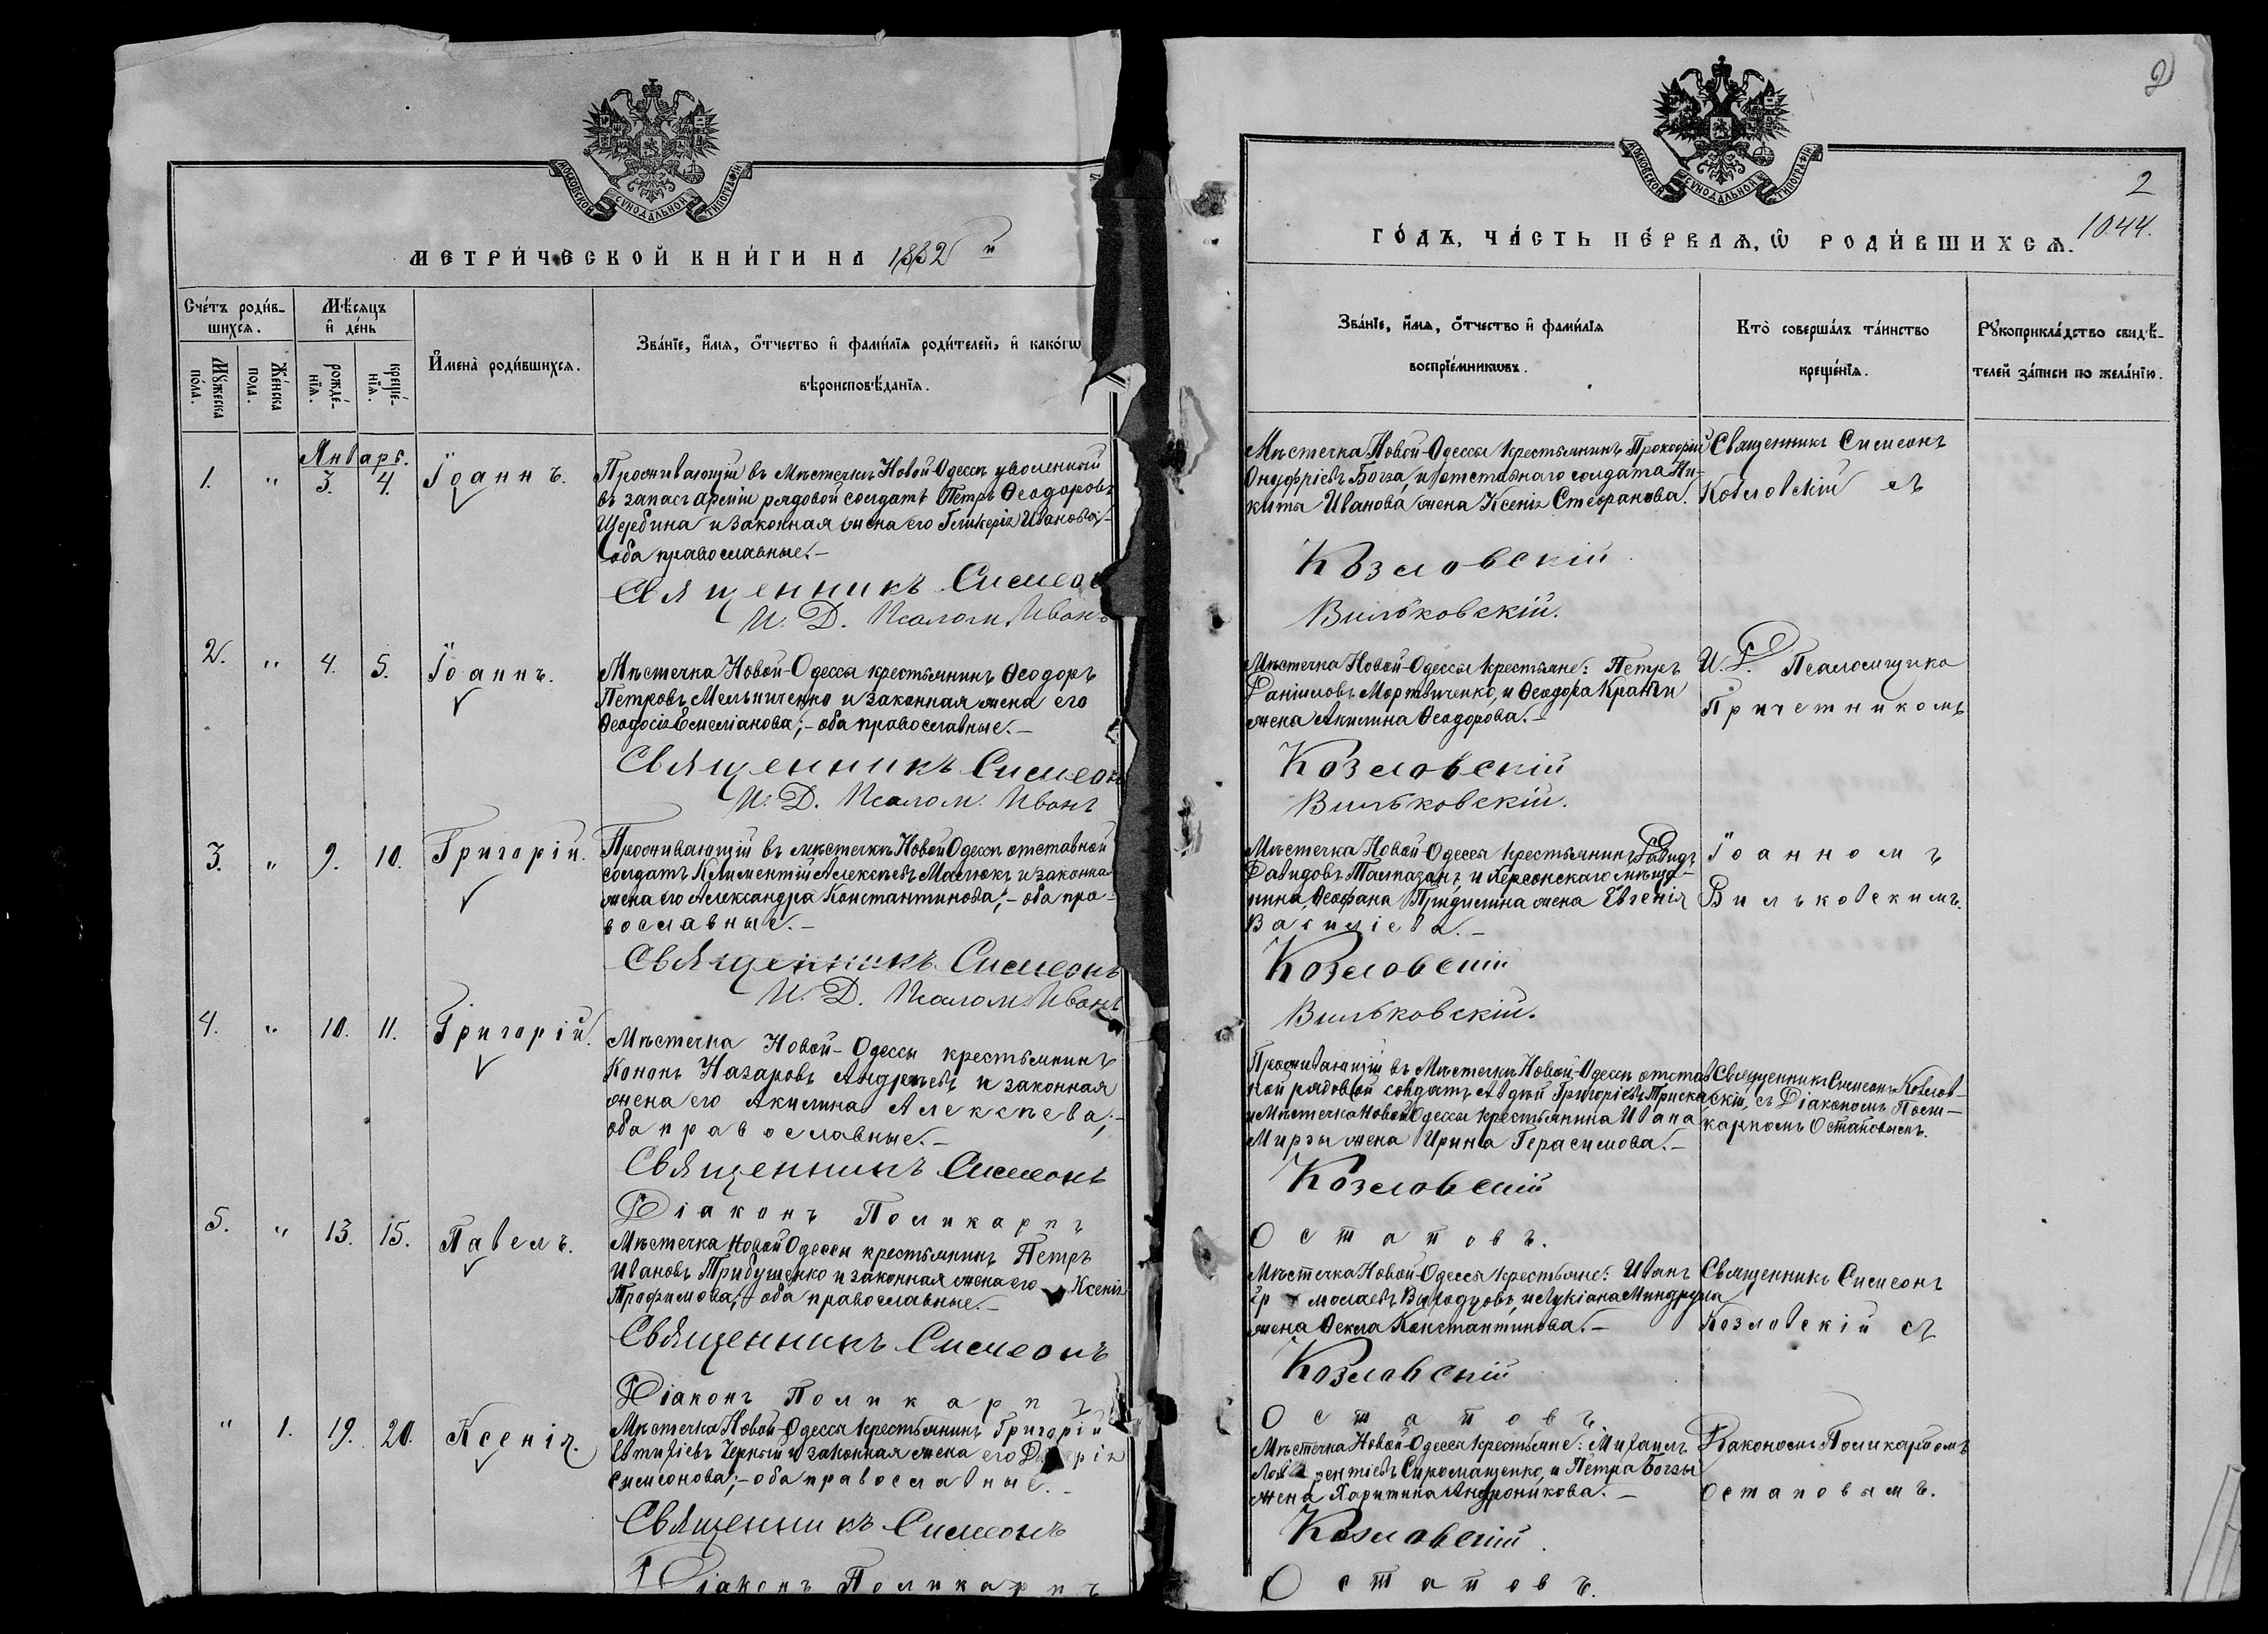 МОСКОВСКОЙ СУНОДАЛЬНОЙ ТИПОГРАФІИ
МЕТРИ́ЧЕСКОЙ КНИ́ГИ НА 1882 й
Сче́тъ роди́в-
шихся.
Мѣ́сяцъ
и҆ де́нь
И҆мена̀ роди́вшихся.
Зва́нїе, и҆́мя, ѻ҆́тчество и҆ фами́лїя роди́телей, и҆ како́гѡ
вѣроисповѣ́данїя.
Мꙋ́жеска
по́ла.
Же́нска
пола.
рожде́-
нїя.
креще́-
нїя.
Январь.
1. " 3. 4. Іоаннъ.
Проживающій въ Мѣстечкѣ Новой-Одессѣ уволенный
въ запасъ арміи рядовой солдатъ Петръ Ѳеодоровъ
Щербина и законная жена его Гликерія Иванова;-
оба православные.-
Священникъ Симеон
И. Д. Псалом. Иванъ
2. " 4. 5. Іоаннъ.
Мѣстечка Новой-Одессы крестьянинъ Ѳеодоръ
Петровъ Мельниченко и законная жена его
Ѳеодосія Емеліанова;- оба православные.-
Священникъ Симеон
И. Д. Псалом. Иванъ
3. " 9. 10. Григорій.
Проживающій въ мѣстечкѣ Новой Одессѣ отставной
солдатъ Климентій Алексѣевъ Маслюкъ и законная
жена его Александра Константинова;- оба пра-
вославные.-
Священникъ Симеонъ
И. Д. Псалом. Иванъ
4. " 10. 11. Григорій.
Мѣстечка Новой-Одессы крестьянинъ
Кононъ Назаровъ Андреевъ и законная
жена его Акилина Алексѣева;-
оба православные.-
Священникъ Симеонъ
Діаконъ Поликарпъ
5. " 13. 15. Павелъ.
Мѣстечка Новой Одессы крестьянинъ Петръ
Ивановъ Трибушенко и законная жена его Ксенія
Трофимова;- оба православные.-
Священникъ Симеонъ
Діаконъ Поликарпъ
" 1. 19. 20. Ксенія.
Мѣстечка Новой-Одессы крестьянинъ Григорій
Евтихіевъ Черный и законная жена его
Симеонова;- оба православные.-
Священникъ Симеонъ
Діаконъ Поликарпъ
2
2
1044.
МОСКОВСКОЙ СУНОДАЛЬНОЙ ТИПОГРАФІИ
ГО́ДЪ, ЧА́СТЬ ПЕ́РВАЯ, Ѡ РОДИ́ВШИХСЯ.
Зва́нїе, и҆́мя, ѻ҆́тчество и҆ фами́лїя
воспрїе́мникѡвъ.
Кто̀ соверша́лъ та́инство
креще́нїя.
Рꙋкоприкла́дство свидѣ́-
телей за́писи по жела́нїю.
Мѣстечка Новой-Одессы крестьянинъ Прокофій
Онуфріевъ Богза, и отставнаго солдата Ни-
киты Иванова жена Ксенія Стефанова.
Священникъ Симеонъ
Козловскій съ
Козловскій
Вильковскій.
Мѣстечка Новой-Одессы крестьяне: Петръ
Даніиловъ Мортвиченко, и Ѳеодора
жена Акилина Ѳеодорова.-
И. Д. Псаломщика
Причетникомъ
Козловскій
Вильковскій.
Мѣстечка Новой-Одессы крестьянинъ Давидъ
Давидовъ Талпазанъ, и Херсонскаго мѣща-
нина Ѳеофана жена Евгенія
Василіева.-
Іоанномъ
Вильковскимъ.
Козловскій
Вильковскій.
Проживающій въ Мѣстечкѣ Новой-Одессѣ отстав
ной рядовой солдатъ Авдѣй Григоріевъ Триска,
и Мѣстечка Новой Одессы крестьянина Ивана
Мирзы жена Ирина Герасимова.-
Священникъ Симеонъ Козлов-
скій, съ Діакономъ Поли-
карпомъ Остаповымъ.
Козловскій
Остаповъ.
Мѣстечка Новой-Одессы крестьяне: Иванъ
и Лукіана Миндрула
жена Ѳекла Константинова.-
Священникъ Симеонъ
Козловскій съ
Козловскій
Остаповъ.
Мѣстечка Новой-Одессы крестьяне: Михаилъ
Лаврентіевъ Сиромащенко, и Петра Богзы
жена Харитина Андроникова.-
Діакономъ Поликарпомъ
Остаповымъ.
Козловскій
Остаповъ.